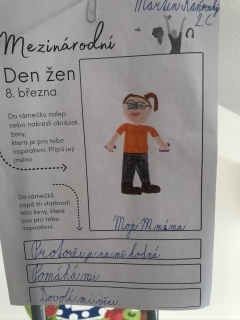 Martin Kaňovský
2.C.
Mezinárodní
Den žen
8. března
Do rámečku nalep
nebo nakresli obrázek
ženy,
která je pro tebe
inspirativní. Připiš její
jméno.
Do rámečků
zapiš tři vlastnosti
této ženy, které
jsou pro tebe
inspirativní.
Moje máma
Protože je na mě hodná
Pomáhá mi
Dovolí mi více